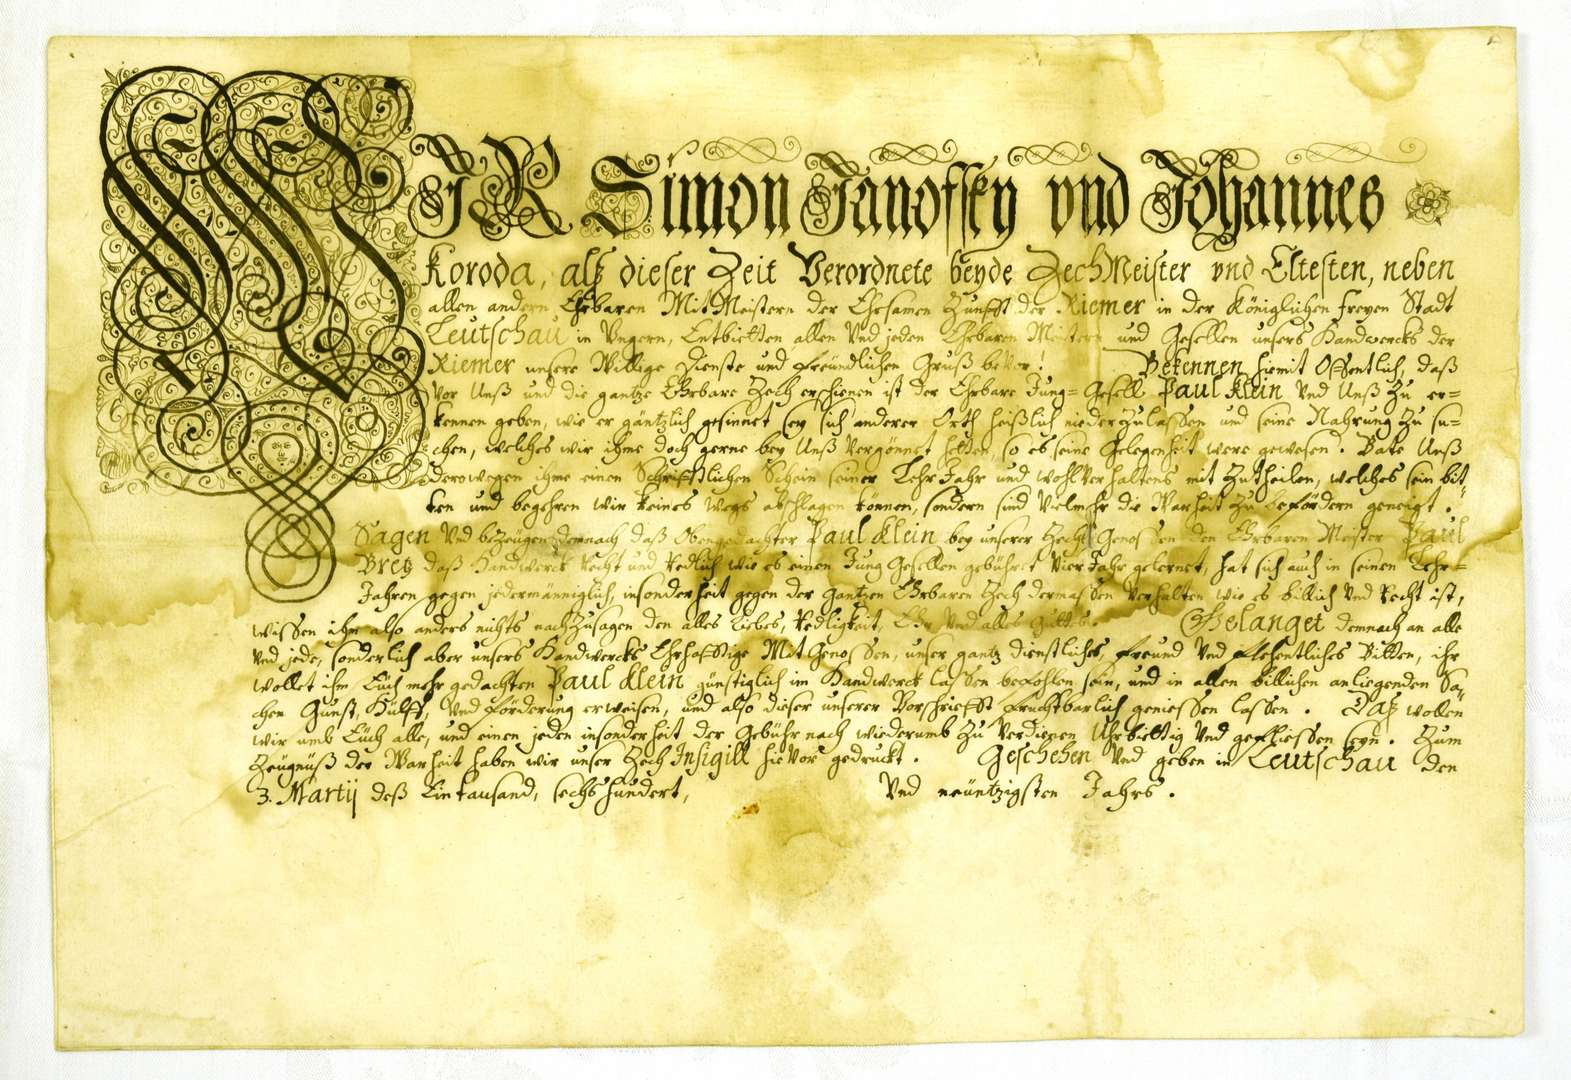 WIR Simon Janofsky vnd Johannes
Koroda, alß dieser Zeit Verordnete beyde ZechMeister vnd Eltesten, neben
allen andern Ehrbaren MitMeistern der Ehrsamen Zunfft der Riemer in der Königlichen freyen Stadt
Leutschau in Vngern, Entbietten allen Vnd jeden Ehrbaren Meistern und Gesellen unsers Handwercks der
Riemer unsere Willige Dienste und freündlichen Gruß bevor! Bekennen hiemit Offentlich, daß
Vor Unß und die gantze Ehrbare Zech erschienen ist der Ehrbare Jung= Gesell Paul Klein Vnd Unß Zu er=
kennen geben, wie er gäntzlich gesinnet sey sich anderer Orth heißlich niederZulassen und seine Nahrung Zu su=
chen, welches wir ihme doch gerne bey Unß Vergönnet hetten, so es seine Gelegenheit were gewesen. Bate Unß
derowegen ihme einen Schrifftlichen Schein seiner LehrJahr und wohlVerhaltens mit Zutheilen, welches sein bit=
ten und begehren wir keines wegs abschlagen können, sondern sind Vielmehr die Warheit Zu befördern geneigt.
Sagen Vnd beZeugen demnach daß Obengedachter Paul Klein bey unserer Zech Genossen den Ehrbaren Meister Paul
Bretz daß Handwerck Recht und Redlich wie es einen Jung Gesellen gebühret Vier Jahr gelernet, hat sich auch in seinen Lehr=
Jahren gegen jedermänniglich, insonderheit gegen der gantzen Ehrbaren Zech dermassen Verhalten wie es billich Vnd Recht ist,
wissen ihm also anders nichts nachZusagen den alles Liebes, Redligkeit, Ehr Vnd alles Guttes. Gelanget demnach an alle
Vnd jede, sonderlich aber unsers Handwercks Ehrhafftige MitGenossen, unser gantz dienstliches, freund Vnd flehentliches Bitten, ihr
wollet ihm Eüch mehr gedachten Paul Klein günstiglich im Handwerck lassen befohlen sein, und in allen billichen anliegenden Sa=
chen Gunst, Hülff, Vnd förderung erweisen, und also dieser unserer Vorschrifft fruchtbarlich geniessen lassen. Daß wollen
wir umb Eüch alle, und einen jeden insonderheit der Gebühr nach wiederumb Zu Verdienen Vhrbiettig Vnd geflissen seyn. Zum
Zeugnüß der Warheit haben wir unser Zech Insigill hieVor gedruckt. Geschehen Vnd geben in Leutschau den
3. Martij deß Eintausend, sechshundert, Vnd neüntzigsten Jahrs.